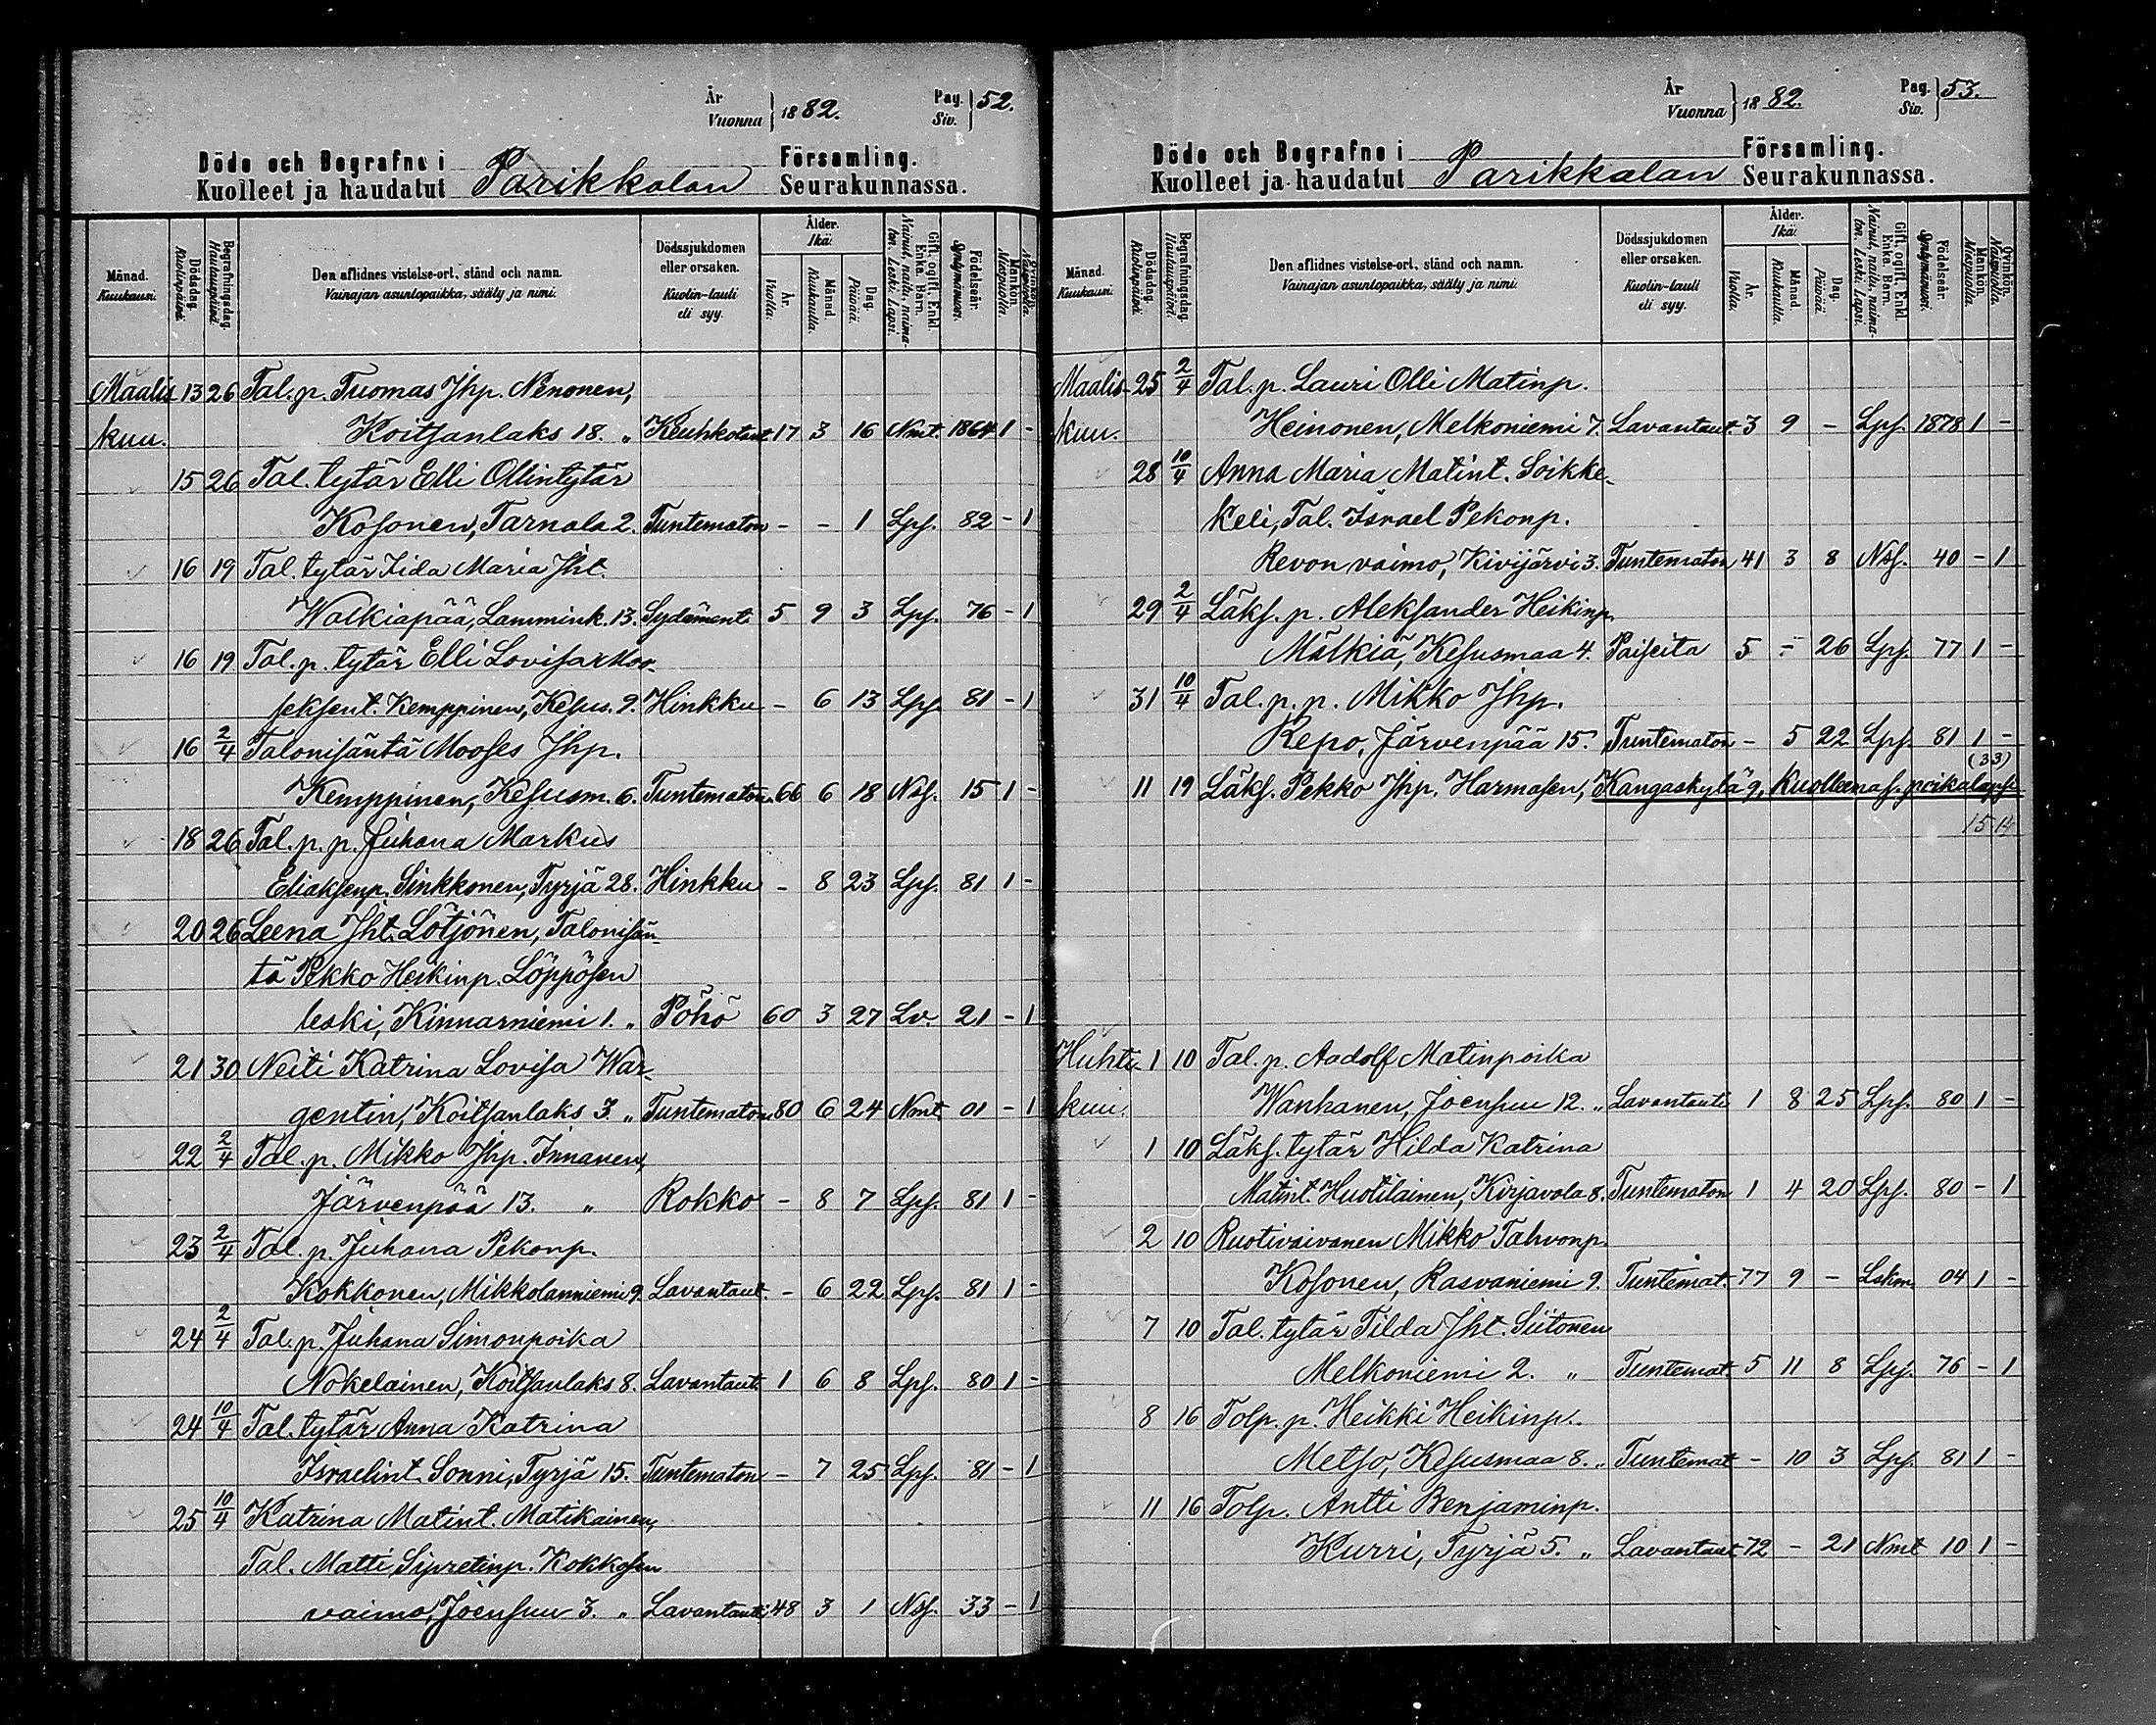 År
Vuonna } 1882.
Pag.
Siv. } 52.
Döde och Begrafne i Församling.
Kuolleet ja haudatut Parikkalan Seurakunnassa.
Månad. Kuukausi.
Dödsdag. Kuolinpäivä.
Begrafningsdag. Hautauspäivä.
Den aflidnes vistelse-ort, stånd och namn.
Vainajan asuntopaikka, sääty ja nimi.
Dödssjukdomen eller orsaken.
Kuolin-tauti eli syy.
Ålder. Ikä.
År. Vuotta.
Månad. Kuukautta.
Dag. Päivää.
Gift, ogift, Enkl. Enka, Barn.
Nainut, naitu, naimaton. Leski. Lapsi.
Födelseår. Syntymävuosi.
Mankön. Miespuolia.
Qvinkön. Naispuolia.
Maalis 13 26 Tal. p. Tuomas Jhp. Nenonen,
kuu. Koitsanlaks 18. „ Keuhkotaut. 17 3 16 Nmt. 1864 1 -
15 26 Tal. tytär Elli Ollintytär
Kosonen, Tarnala 2. Tuntematon - - 1 Lps. 82 - 1
16 19 Tal. tytär Iida Maria Jht.
Walkiapää, Lammink. 13. Sydäment. 5 9 3 Lps. 76 - 1
16 19 Tal. p. tytär Elli Lovisa Moo-
seksent. Kemppinen, Kesus. 9. Hinkku - 6 13 Lps. 81 - 1
16 2/4 Talonisäntä Mooses Jhp.
Kemppinen, Kesusm. 6. Tuntematon 66 6 18 Nsf. 15 1 -
18 26 Tal. p. p. Juhana Markus
Eliaksenp. Sinkkonen, Tyrjä 28. Hinkku - 8 23 Lps. 81 1 -
20 26 Leena Jht. Lötjönen, Talonisän-
tä Pekko Heikinp. Löppösen
leski, Kinnarniemi 1. „ Pöhö 60 3 27 Lv. 21 - 1
21 30 Neiti Katrina Lovisa War-
gentin, Koitsanlaks 3. „ Tuntematon 80 6 24 Nmt. 01 - 1
22 2/4 Tal. p. Mikko Jhp. Innanen,
Järvenpää 13. „ Rokko - 8 7 Lps. 81 1 -
23 2/4 Tal. p. Juhana Pekonp.
Kokkonen, Mikkolanniemi 9. Lavantaut. - 6 22 Lps. 81 1 -
24 2/4 Tal. p. Juhana Simonpoika
Nokelainen, Koitsanlaks 8. Lavantaut. 1 6 8 Lps. 80 1 -
24 10/4 Tal. tytär Anna Katrina
Israelint. Sonni, Tyrjä 15. Tuntematon - 7 25 Lps. 81 - 1
25 10/4 Katrina Matint. Matikainen,
Tal. Matti Sipretinp. Kokkosen
vaimo, Joensuu 3. „ Lavantauti 48 3 1 Nsf. 33 - 1
År
Vuonna } 1882.
Pag.
Siv. } 53.
Döde och Begrafne i Församling.
Kuolleet ja haudatut Parikkalan Seurakunnassa.
Månad. Kuukausi.
Dödsdag. Kuolinpäivä.
Begrafningsdag. Hautauspäivä.
Den aflidnes vistelse-ort, stånd och namn.
Vainajan asuntopaikka, sääty ja nimi.
Dödssjukdomen eller orsaken.
Kuolin-tauti eli syy.
Ålder. Ikä.
År. Vuotta.
Månad. Kuukautta.
Dag. Päivää.
Gift, ogift, Enkl. Enka, Barn.
Nainut, naitu, naimaton. Leski. Lapsi.
Födelseår. Syntymävuosi.
Mankön. Miespuolia.
Qvinkön. Naispuolia.
Maalis- 25 2/4 Tal. p. Lauri Olli Matinp.
kuu. Heinonen, Melkoniemi 7. Lavantaut. 3 9 - Lps. 1878 1 -
28 10/4 Anna Maria Matint. Soikke-
keli, Tal. Israel Pekonp.
Revon vaimo, Kivijärvi 3. Tuntematon 41 3 8 Nsf. 40 - 1
29 2/4 Läks. p. Aleksander Heikinp.
Mälkiä, Kesusmaa 4. Paiseita 5 - 26 Lps. 77 1 -
31 10/4 Tal. p. p. Mikko Jhp.
Repo, Järvenpää 15. Tuntematon - 5 22 Lps. 81 1 -
(33)
11 19 Läks. Pekko Jhp. Harmasen, Kangaskylä 9, kuolleenas. poikalapsi
15 14
Huhti- 1 10 Tal. p. Aadolf Matinpoika
kuu. Wanhanen, Joensuu 12. „ Lavantauti 1 8 25 Lps. 80 1 -
1 10 Läks. tytär Hilda Katrina
Matint. Huotilainen, Kirjavala 8. Tuntematon 1 4 20 Lps. 80 - 1
2 10 Ruotivaivanen Mikko Tahvonp.
Kosonen, Rasvaniemi 9. Tuntemat. 77 9 - Lskm. 04 1 -
7 10 Tal. tytär Tilda Jht. Siitonen
Melkoniemi 2. „ Tuntemat. 5 11 8 Lps. 76 - 1
8 16 Tolp. p. Heikki Heikinp.
Metso, Kesusmaa 8. „ Tuntemat - 10 3 Lps. 81 1 -
11 16 Tolp. Antti Benjaminp.
Kurri, Tyrjä 5. „ Lavantaut 72 - 21 Nmt 10 1 -